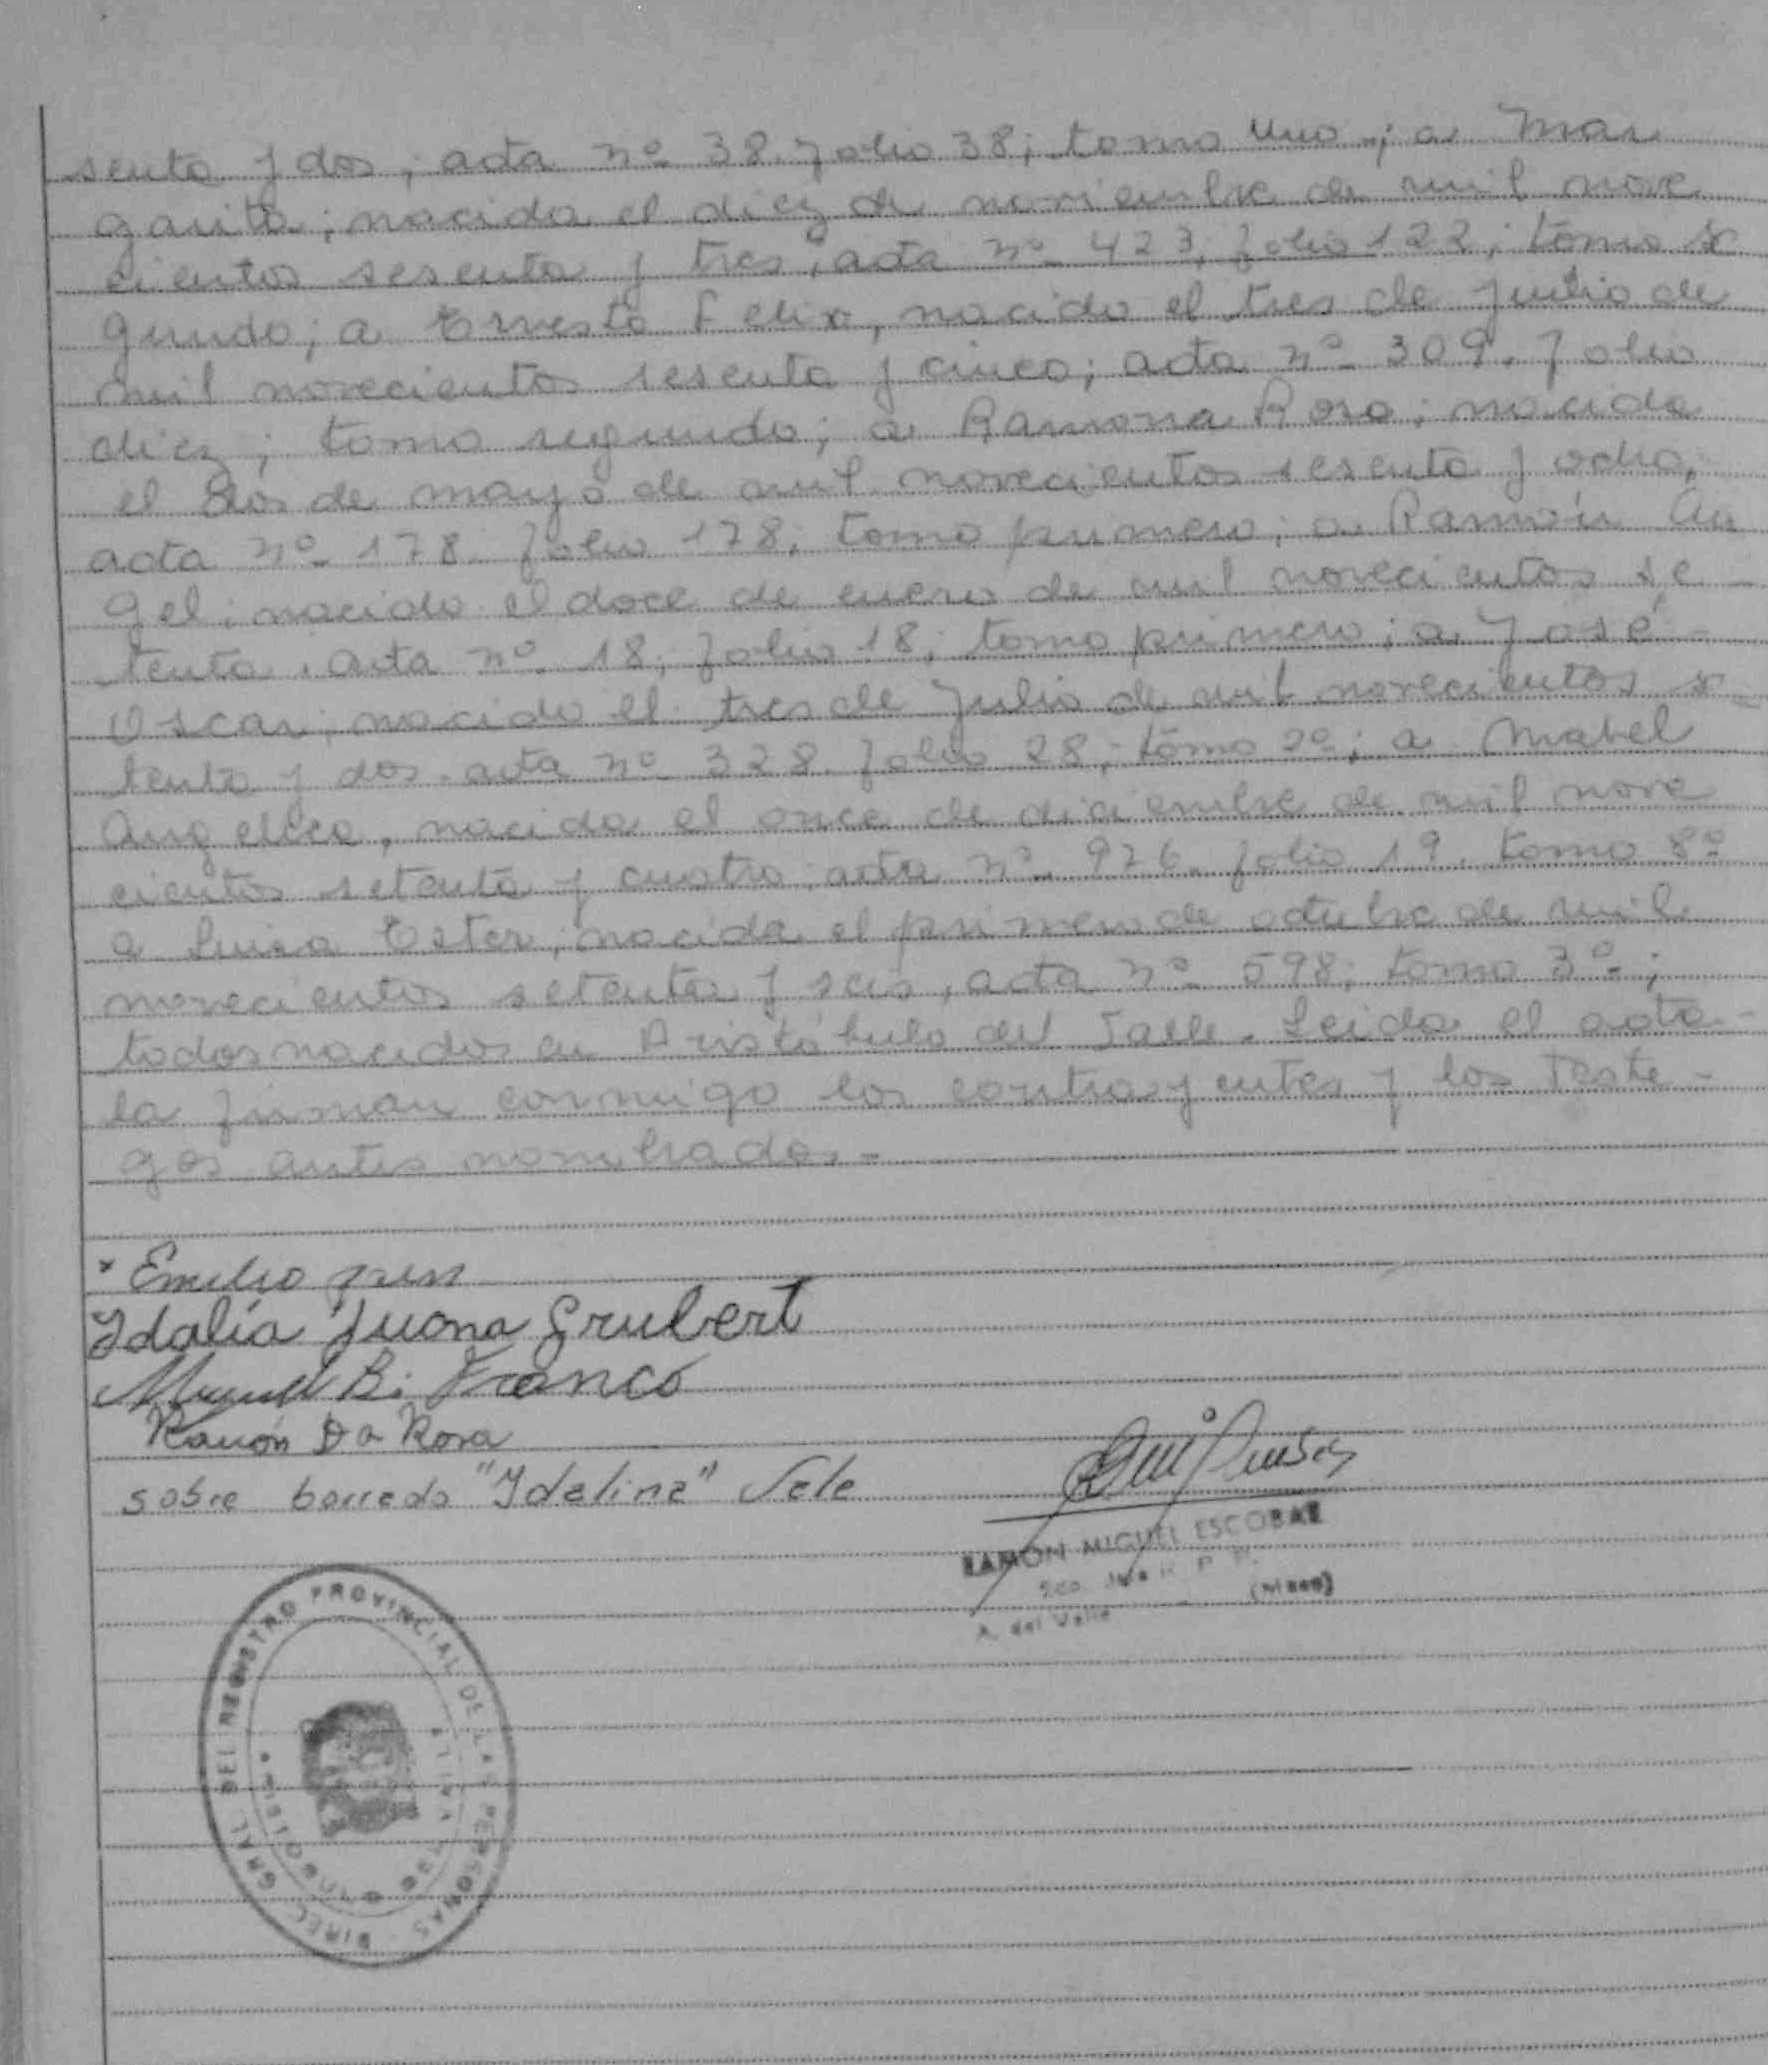 senta y dos; acta nº 38. folio 38; tomo uno; a Mar
garita; nacida el diez de noviembre de mil nove
cientos sesenta y tres, acta nº 423, folio 122; tomo se
gundo; a Ernesto Felix, nacido el tres de julio de
mil novecientos sesenta y cinco; acta nº 309. folio
diez; tomo segundo; a Ramona Rosa; nacida
el dos de mayo de mil novecientos sesenta y ocho,
acta nº 178. folio 178; tomo primero; a Ramón An
gel; nacido el doce de enero de mil novecientos se-
tenta. acta nº 18; folio 18; tomo primero; a José-
Oscar; nacido el tres de julio de mil novecientos se
tenta y dos. acta nº 328. folio 28; tomo 2º; a Mabel
Angelica, nacida el once de diciembre de mil nove
cientos setenta y cuatro acta nº 976. folio 19. tomo 5º
a Luisa Ester; nacida el primero de octubre de mil
novecientos setenta y seis, acta nº 598; tomo 3º;
todos nacidos en Aristóbulo del Valle. Leida el acta-
la firman conmigo los contrayentes y los Testi-
gos antes nombrados.-
* Emilio
Idalia Juana Grubert
B. Franco
Ramón Da Rosa
sobre borrado "Idalina" Vale
RAMON MIGUEL ESCOBAR
A. del Valle (Mnes)
DIREC. GRAL. DEL REGISTRO PROVINCIAL DE LAS PERSONAS
ARISTOBULO DEL VALLE